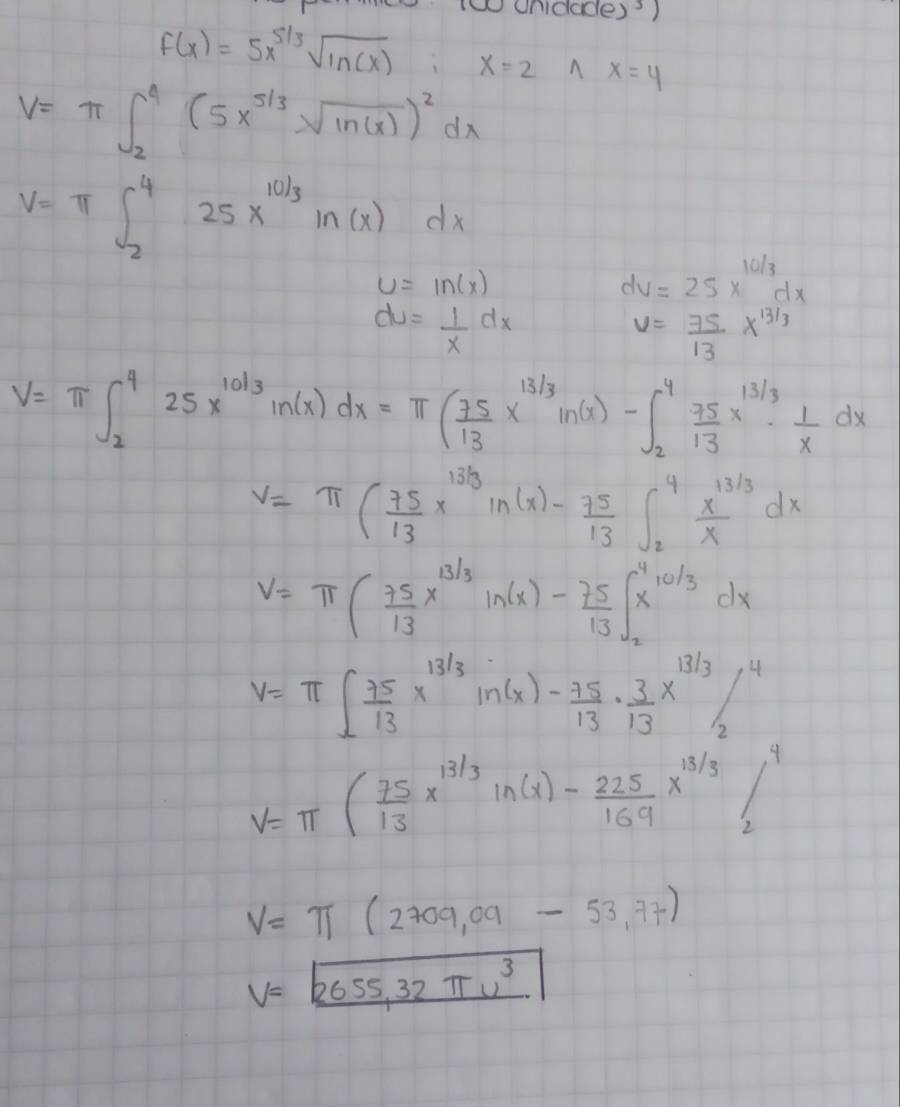 (CO Unidades³)
f(x) = 5x^5/3 √ln(x) ; x=2 ∧ x=4
V= π ∫₂⁴ (5x^5/3 √ln(x))² dx
V= π ∫₂⁴ 25x^10/3 ln(x) dx
u= ln(x) dv= 25x^10/3 dx
du= 1/x dx v= 75/13 x^13/3
V= π ∫₂⁴ 25x^10/3 ln(x) dx = π (75/13 x^13/3 ln(x) - ∫₂⁴ 75/13 x^13/3 · 1/x dx
V= π (75/13 x^13/3 ln(x) - 75/13 ∫₂⁴ x^13/3/x dx
V= π (75/13 x^13/3 ln(x) - 75/13 ∫₂⁴ x^10/3 dx
V= π [75/13 x^13/3 ln(x) - 75/13 · 3/13 x^13/3 /₂⁴
V= π (75/13 x^13/3 ln(x) - 225/169 x^13/3 /₂⁴
V= π (2709,09 - 53,77)
V= 2655,32 π u³.